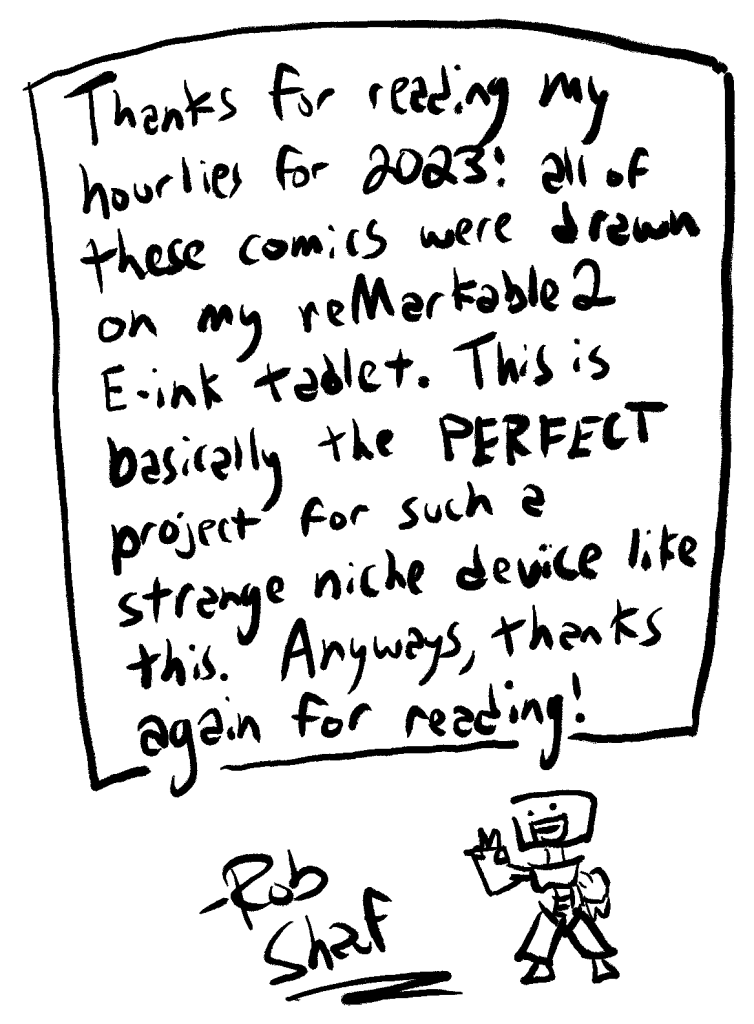 Thanks for reading my
hourlies for 2023! all of
these comics were drawn
on my reMarkable2
E-ink tablet. This is
basically the PERFECT
project for such a
strange niche device like
this. Anyways, thanks
again for reading!
-Rob
Shaf